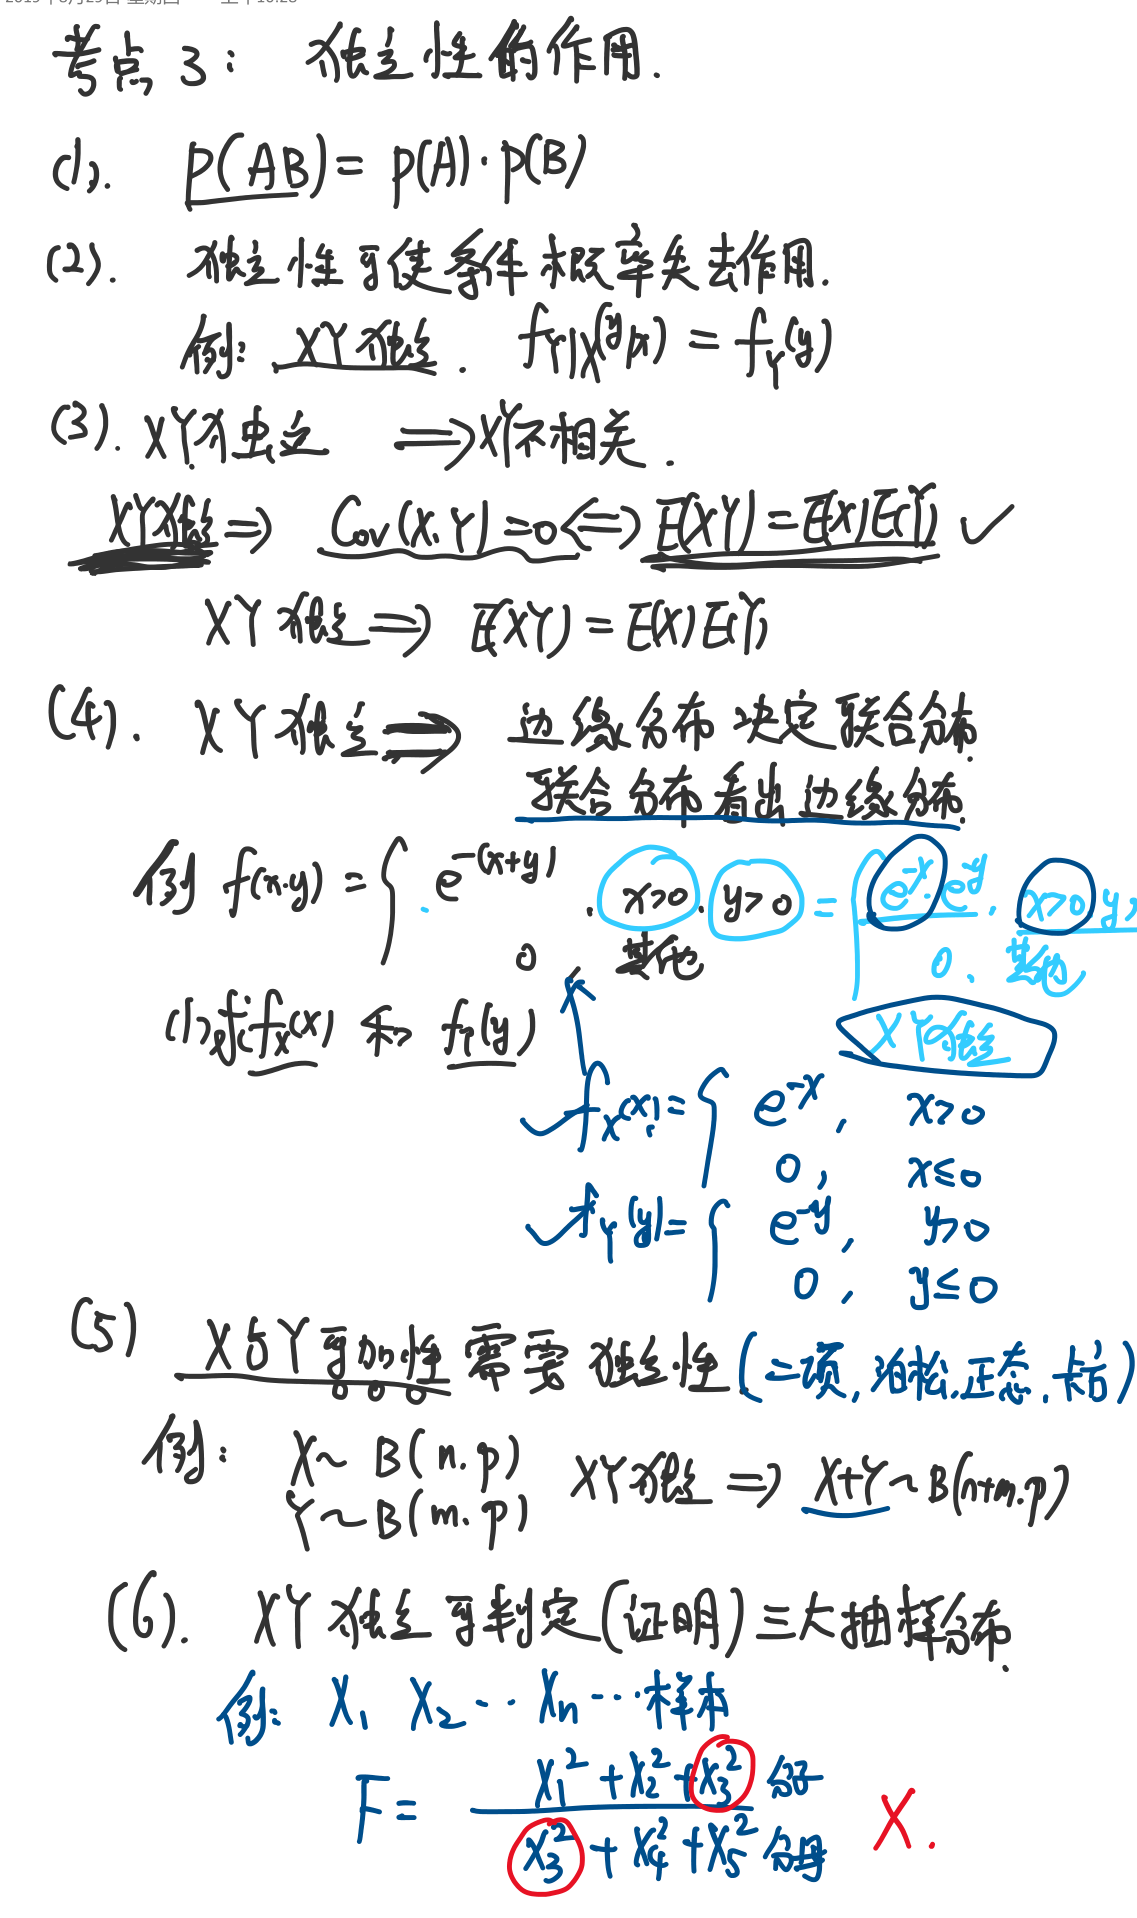 考点3：独立性的作用.
(1). P(AB)=P(A)·P(B)
(2). 独立性可使条件概率失去作用.
例: XY独立. f_{Y|X}(y|x)=f_Y(y)
(3). XY独立 ⟹ XY不相关.
XY独立 ⟹ Cov(X,Y)=0 ⟺ E(XY)=E(X)E(Y) ✓
XY独立 ⟹ E(XY)=E(X)E(Y)
(4). XY独立 ⟹ 边缘分布决定联合分布
联合分布看出边缘分布.
例 f(x.y)={ e^{-(x+y)}. x>0. y>0 = { e^{-x}·e^{-y}. x>0 y>
0 其他 0. 其他
(1)求f_X(x)和f_Y(y) XY独立
✓ f_X(x)={ e^{-x}, x>0
0, x≤0
✓ f_Y(y)={ e^{-y}, y>0
0, y≤0
(5) X与Y可加性需要独立性(二项,泊松,正态.卡方)
例: X~B(n.p)
Y~B(m.p) XY独立 ⟹ X+Y~B(n+m.p)
(6). XY独立可判定(证明)三大抽样分布.
例: X₁ X₂ ·· Xₙ ···样本
F= X₁²+X₂²+X₃² 分子
X₃²+X₄²+X₅² 分母 X.